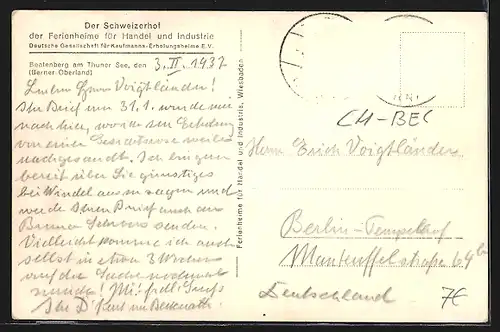 Der Schweizerhof
der Ferienheime für Handel und Industrie
Deutsche Gesellschaft für Kaufmanns-Erholungsheime E.V.
Beatenberg am Thuner See, den 3. II. 1937
(Berner Oberland)
Lieber Herr Voigtländer!
Ihr Brief vom 31.1. wurde mir
nach hier, wo ich zur Erholung
von einer weile,
nachgesandt. Ich bin gern
bereit über Sie günstiges
bei Windel auszusagen und
werde Ihren Brief auch an
senden.
Vielleicht komme ich auch
selbst in etwa 3 Wochen
auf die Sache nochmals
zurück! Mit frdl. Gruß
Ihr
Ferienheime für Handel und Industrie, Wiesbaden
CH-BEC
Herrn Erich Voigtländer
Berlin-Tempelhof
Manteuffelstraße 64
Deutschland
7€